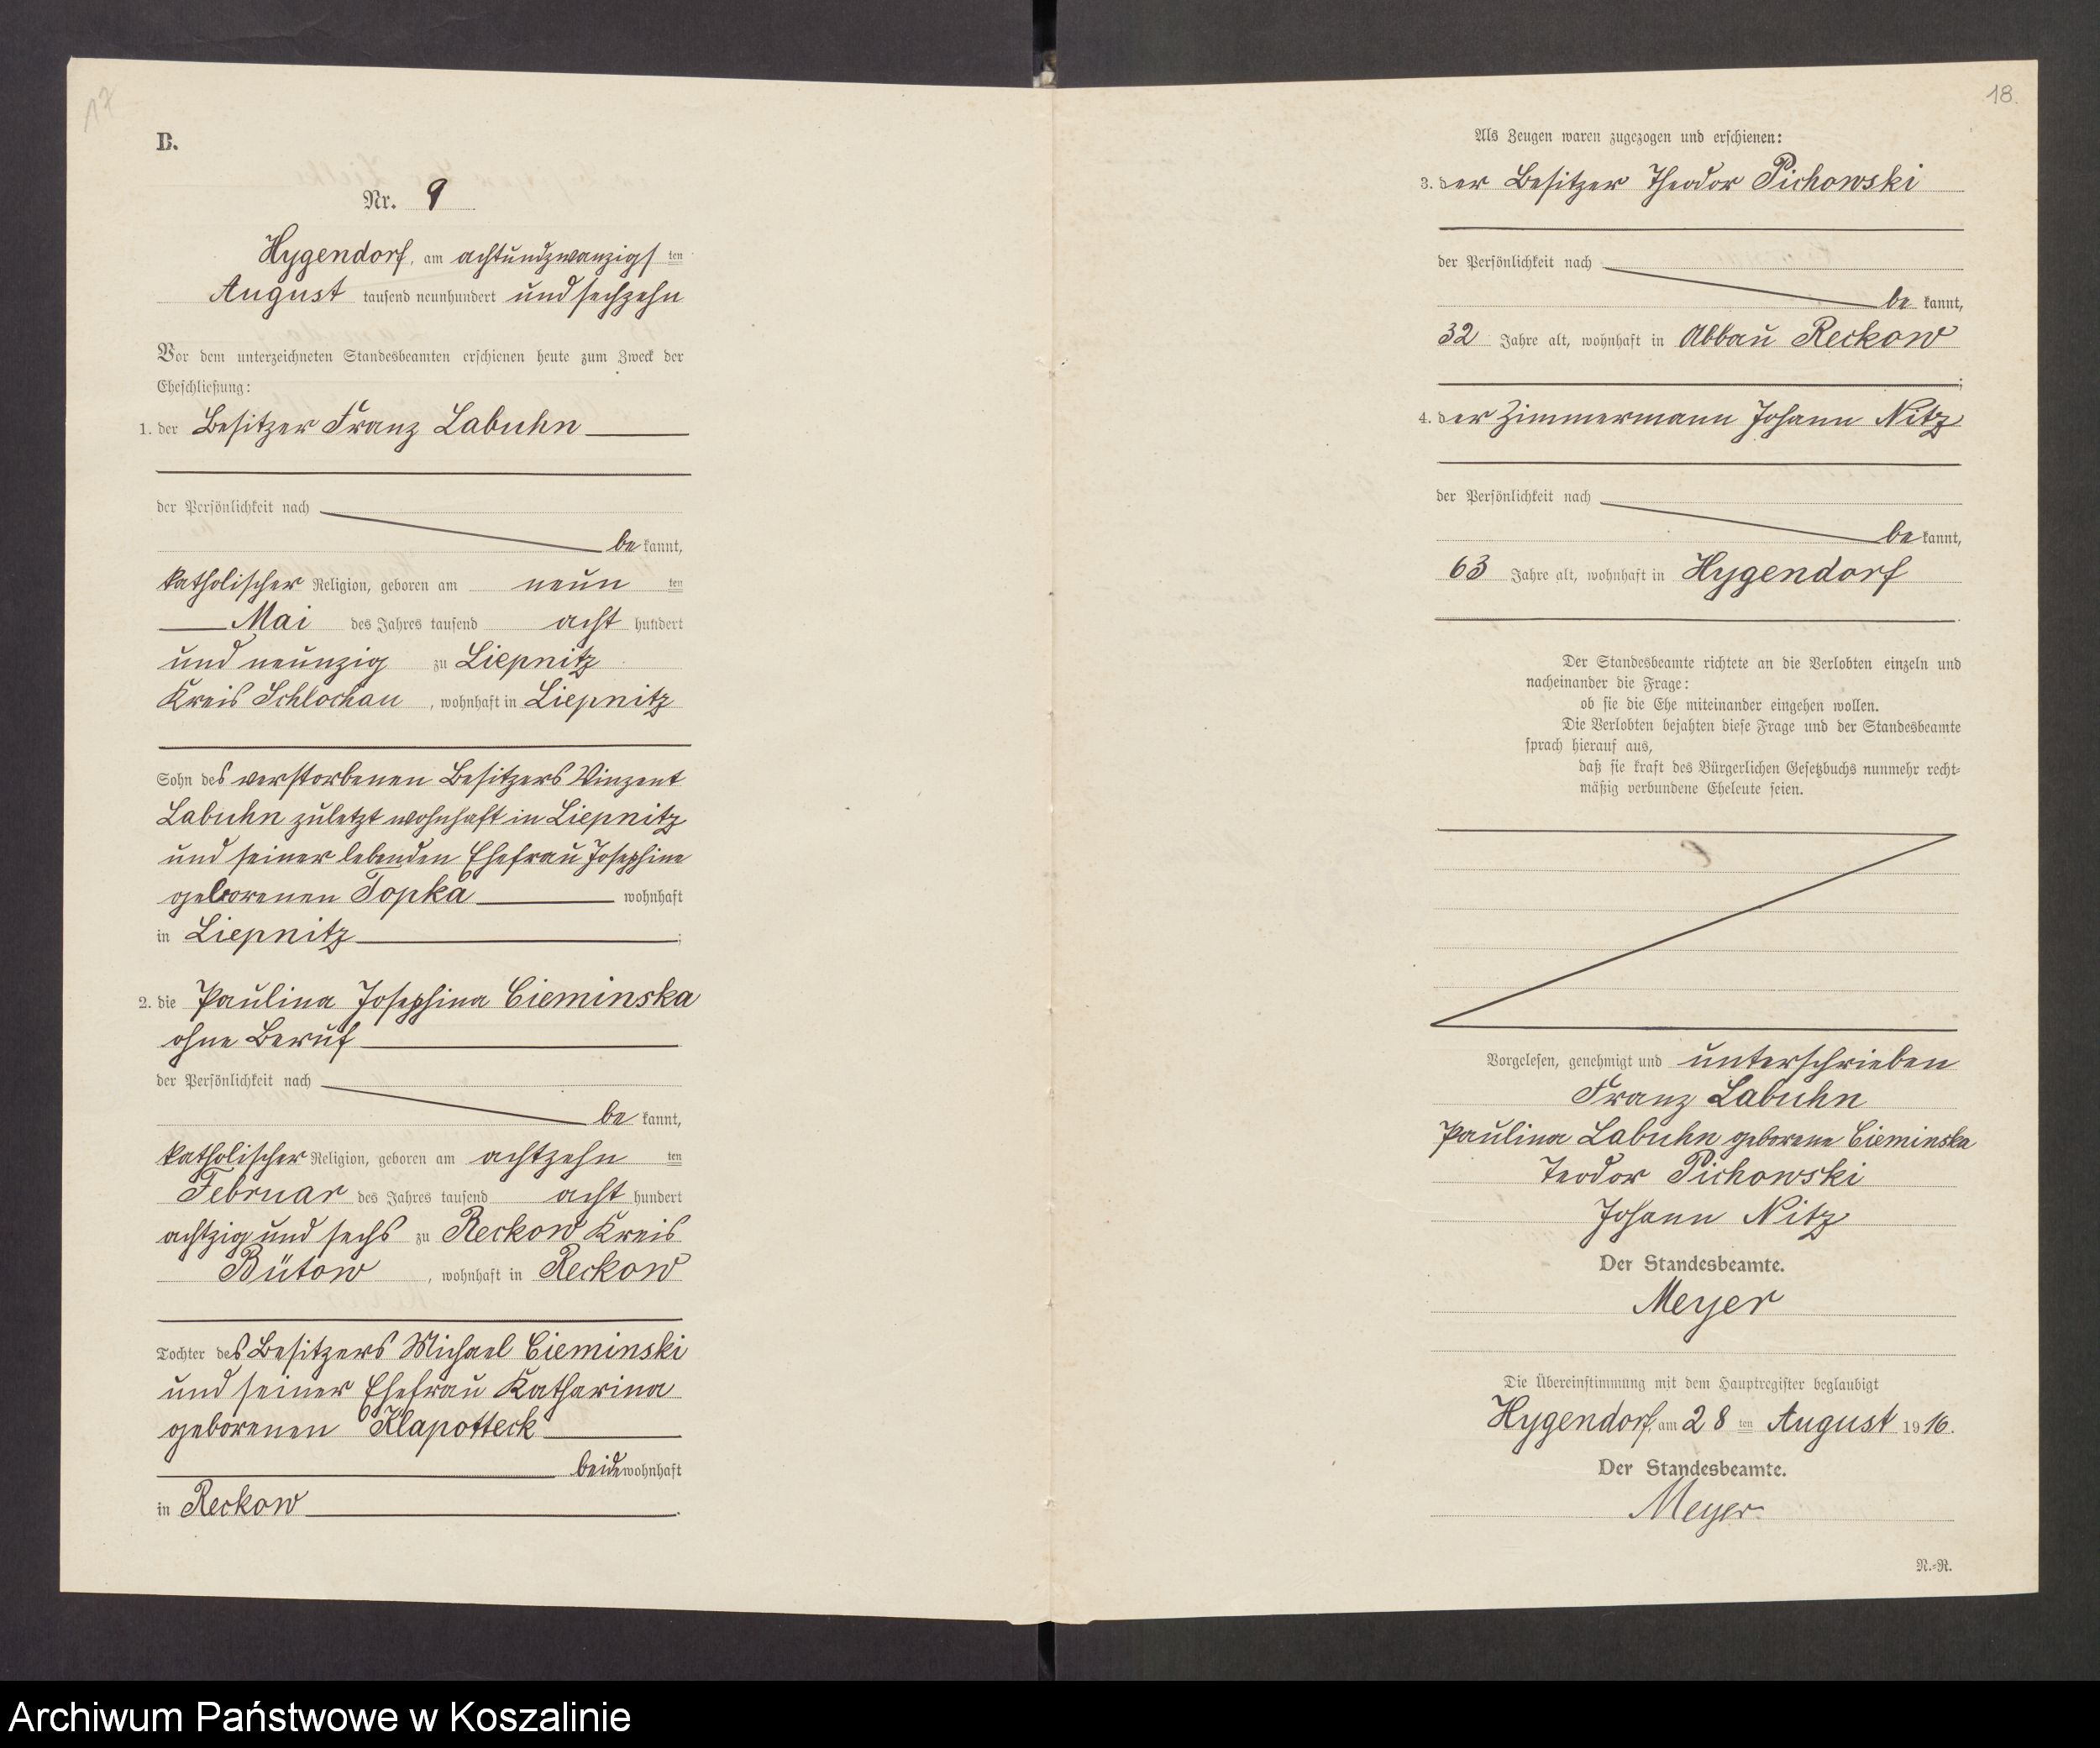 17
B.
Nr. 9
Hygendorf, am achtundzwanzigsten
August tausend neunhundert und sechzehn
Vor dem unterzeichneten Standesbeamten erschienen heute zum Zweck der
Eheschließung:
1. der Besitzer Franz Labuhn
der Persönlichkeit nach
bekannt,
katholischer Religion, geboren am neunten
Mai des Jahres tausend acht hundert
und neunzig zu Liepnitz
Kreis Schlochau, wohnhaft in Liepnitz
Sohn des verstorbenen Besitzers Vinzent
Labuhn zuletzt wohnhaft in Liepnitz
und seiner lebenden Ehefrau Josephine
geborenen Topka wohnhaft
in Liepnitz;
2. die Paulina Josephina Cieminska
ohne Beruf
der Persönlichkeit nach
bekannt,
katholischer Religion, geboren am achtzehnten
Februar des Jahres tausend acht hundert
achtzig und sechs zu Reckow Kreis
Bütow, wohnhaft in Reckow
Tochter des Besitzers Michael Cieminski
und seiner Ehefrau Katharina
geborenen Klapotteck
beide wohnhaft
in Reckow.
18.
Als Zeugen waren zugezogen und erschienen:
3. der Besitzer Theodor Pichowski
der Persönlichkeit nach
bekannt,
32 Jahre alt, wohnhaft in Abbau Reckow
;
4. der Zimmermann Johann Nitz
der Persönlichkeit nach
bekannt,
63 Jahre alt, wohnhaft in Hygendorf
Der Standesbeamte richtete an die Verlobten einzeln und
nacheinander die Frage:
ob sie die Ehe miteinander eingehen wollen.
Die Verlobten bejahten diese Frage und der Standesbeamte
sprach hierauf aus,
daß sie kraft des Bürgerlichen Gesetzbuchs nunmehr recht-
mäßig verbundene Eheleute seien.
Vorgelesen, genehmigt und unterschrieben
Franz Labuhn
Paulina Labuhn geborene Cieminska
Teodor Pichowski
Johann Nitz
Der Standesbeamte.
Meyer
Die Übereinstimmung mit dem Hauptregister beglaubigt
Hygendorf, am 28ten August 1916.
Der Standesbeamte.
Meyer
N.-R.
Archiwum Państwowe w Koszalinie